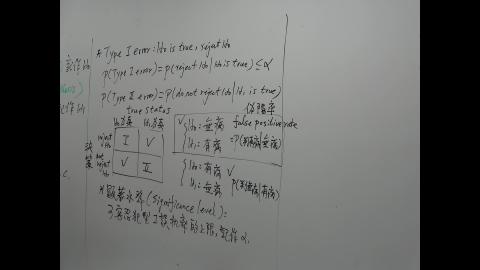 * Type I error: H0 is true, reject H0
記作 H0
P(Type I error) = P(reject H0 | H0 is true) ≤ α
P(Type II error) = P(do not reject H0 | H1 is true)
記作 H1
true status
H0為真 H1為真
reject H0 I V
not reject H0 V II
決策
偽陽率
V { H0: 無病 false positive rate
H1: 有病 = P(判有病|無病)
{ H0: 有病 V
H1: 無病 P(判無病|有病)
* 顯著水準 (significance level):
容忍犯型I誤機率的上限, 記作 α.